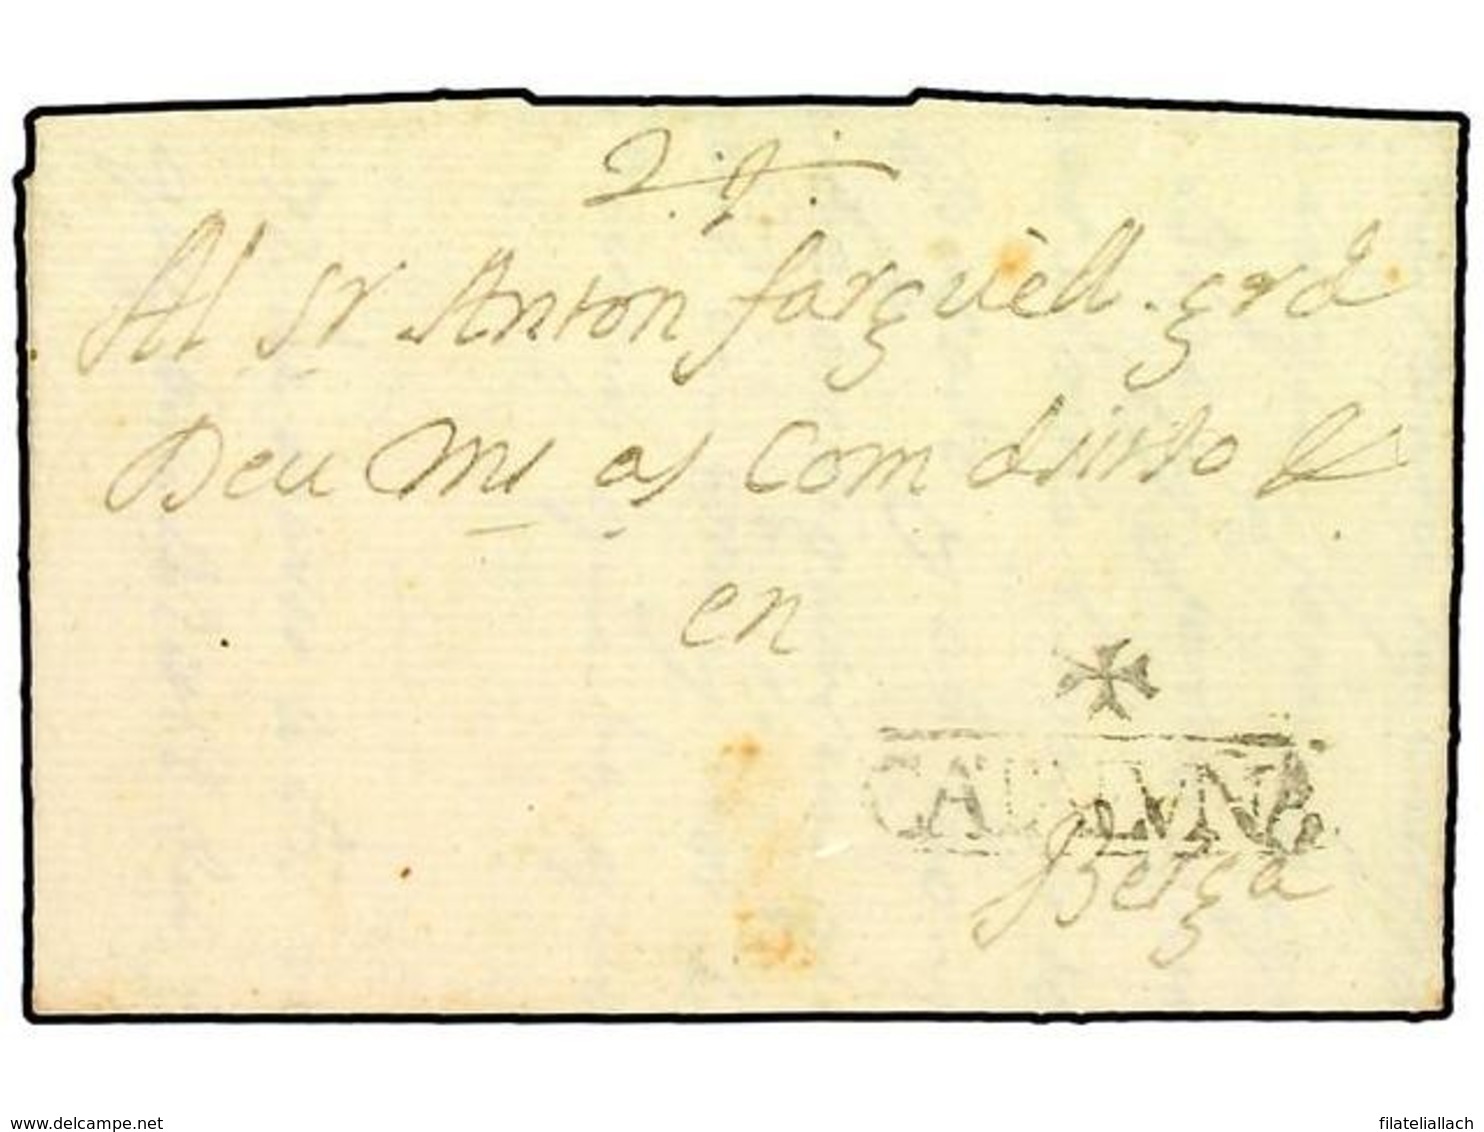 Al Sr Anton farguèll. grd
Deu Ms as Com desitso &
en
CATALVNA
Berga
www.delcampe.net
filateliallach